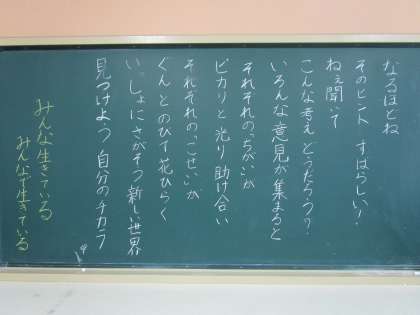 なるほどね
そのヒント すばらしい！
ねぇ聞いて
こんな考え どうだろう？
いろんな意見が集まると
それぞれの「ちがい」が
ピカリと光り 助け合い
それぞれの「こせい」が
ぐんとのびて花ひらく
いっしょにさがそう新しい世界
見つけよう 自分のチカラ
みんな生きている
みんなで生きている